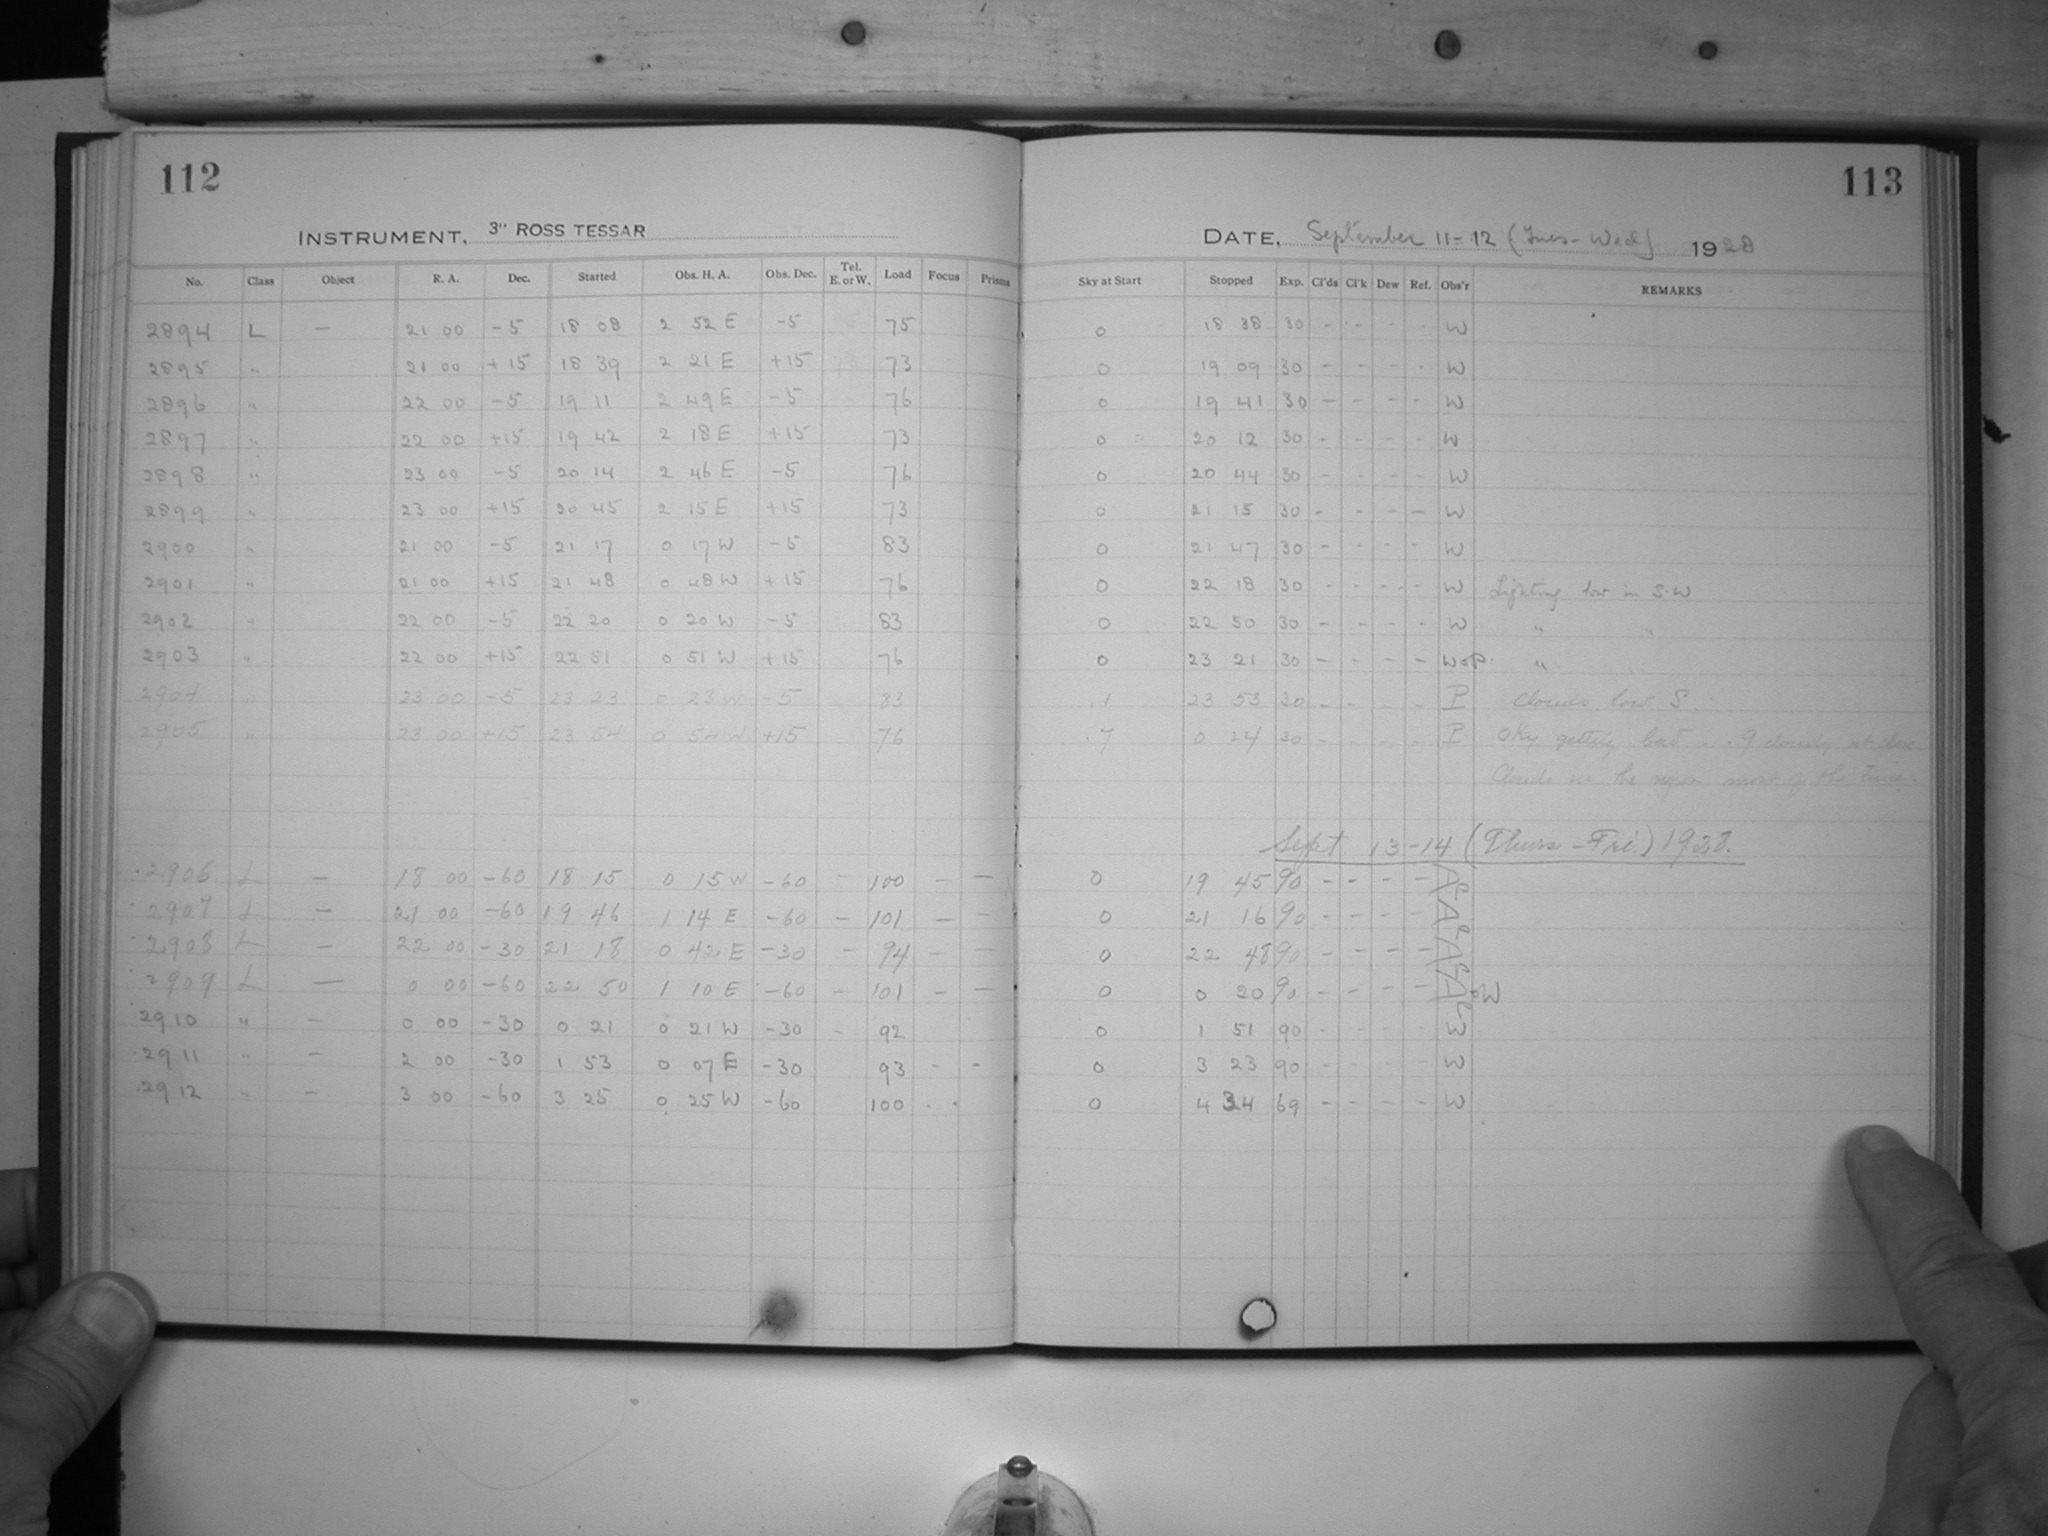 112
113
INSTRUMENT, 3" ROSS TESSAR
DATE, September 11-12 (Tues-Wed) 1928
No. Class Object R. A. Dec. Started Obs. H. A. Obs. Dec. Tel. E. or W. Load Focus Prisms Sky at Start Stopped Exp. Cl'ds Cl'k Dew Ref. Obs'r REMARKS
2894 L — 21 00 -5 18 08 2 52 E -5 75 0 18 38 30 - - - - W
2895 " 21 00 +15 18 39 2 21 E +15 73 0 19 09 30 - - - - W
2896 " 22 00 -5 19 11 2 49 E -5 76 0 19 41 30 - - - - W
2897 " 22 00 +15 19 42 2 18 E +15 73 0 20 12 30 - - - - W
2898 " 23 00 -5 20 14 2 46 E -5 76 0 20 44 30 - - - - W
2899 " 23 00 +15 20 45 2 15 E +15 73 0 21 15 30 - - - - W
2900 " 21 00 -5 21 17 0 17 W -5 83 0 21 47 30 - - - - W
2901 " 21 00 +15 21 48 0 48 W +15 76 0 22 18 30 - - - - W Lighting low in S-W
2902 " 22 00 -5 22 20 0 20 W -5 83 0 22 50 30 - - - - W " "
2903 " 22 00 +15 22 51 0 51 W +15 76 0 23 21 30 - - - - W P. "
2904 " 23 00 -5 23 23 0 23 W -5 83 .1 23 53 30 - - - - P Clouds low S.
2905 " 23 00 +15 23 54 0 54 W +15 76 .7 0 24 30 - - - - P Sky getting bad .9 cloudy at close
Clouds in the region most of the time.
Sept 13-14 (Thurs-Fri.) 1928.
2906 L — 18 00 -60 18 15 0 15 W -60 - 100 - - 0 19 45 90 - - - -
2907 L — 21 00 -60 19 46 1 14 E -60 - 101 - - 0 21 16 90 - - - -
2908 L — 22 00 -30 21 18 0 42 E -30 - 94 - - 0 22 48 90 - - - -
2909 L — 0 00 -60 22 50 1 10 E -60 - 101 - - 0 0 20 90 - - - - W
2910 " — 0 00 -30 0 21 0 21 W -30 - 92 0 1 51 90 - - - - W
2911 " — 2 00 -30 1 53 0 07 E -30 93 - - 0 3 23 90 - - - - W
2912 " — 3 00 -60 3 25 0 25 W -60 100 - - 0 4 34 69 - - - - W